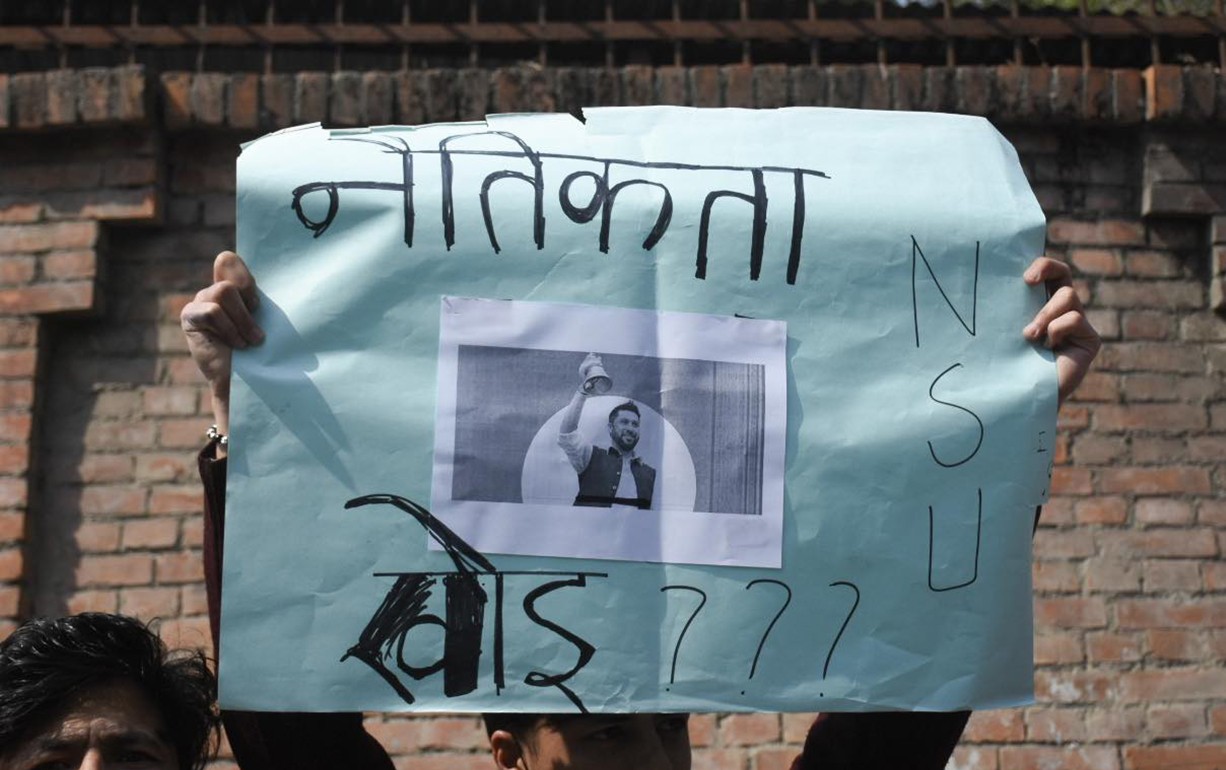 नैतिकता
N
S
U
खोइ ???